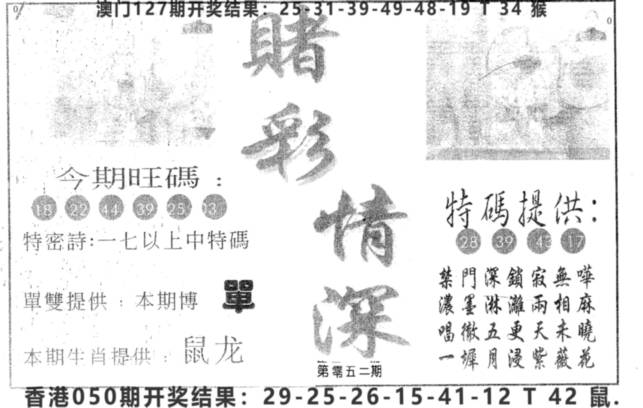 澳门127期开奖结果：25-31-39-49-48-19 T 34 猴
赌彩情深
今期旺碼：
18 22 44 39 25 03
特密詩:一七以上中特碼
單雙提供：本期博 單
本期生肖提供：鼠龙
特碼提供:
28 39 43 17
禁門深鎖寂無嘩
濃墨淋灕兩相麻
唱徹五更天未曉
一墀月浸紫薇花
第零五二期
香港050期开奖结果：29-25-26-15-41-12 T 42 鼠.